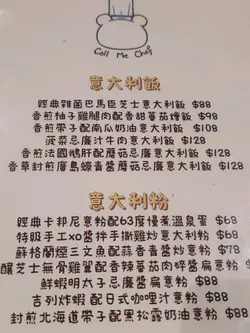 Call Me Chef
意大利飯
經典雜菌巴馬臣芝士意大利飯 $88
香煎柚子雞腿肉配香甜蕃茄燴飯 $98
香煎帶子配南瓜奶油意大利飯 $108
菠菜忌廉汁牛肉意大利飯 $128
香煎法國鵝肝配蘑菇忌廉意大利飯 $128
香草封煎廣島蠔香醬蘑菇忌廉意大利飯 $128
意大利粉
經典卡邦尼意粉配63度慢煮溫泉蛋 $68
特級手工xo醬拌手撕雞炒意大利粉 $68
蘇格蘭煙三文魚配蒜香青醬意粉 $78
釀芝士無骨雞翼配香辣蕃茄肉碎醬扁意粉
鮮蝦明太子忌廉醬扁意粉 $88
吉列炸蝦 配日式咖哩汁意粉 $88
封煎北海道帶子配黑松露奶油大利粉